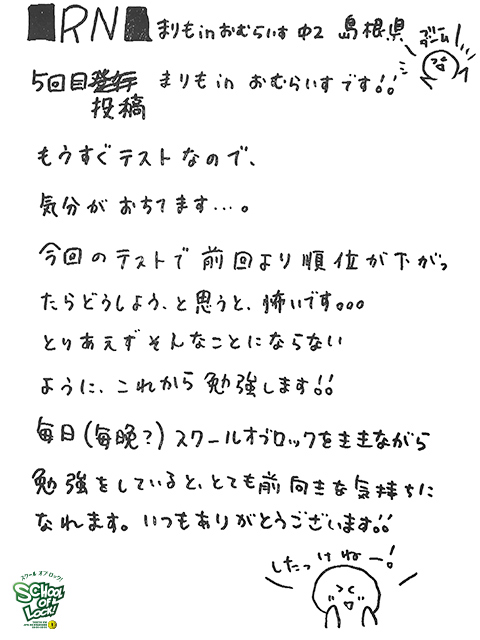 RN まりもinおむらいす 中2 島根県
5回目 まりもin おむらいすです!!
投稿
もうすぐテストなので、
気分がおちてます…。
今回のテストで前回より順位が下がっ
たらどうしよう、と思うと、怖いです。。。
とりあえずそんなことにならない
ように、これから勉強します!!
毎日(毎晩?)スクールオブロックをききながら
勉強をしていると、とても前向きな気持ちに
なれます。いつもありがとうございます!!
したっけねー!
スクール オブ ロック!
SCHOOL
OF
LOCK!